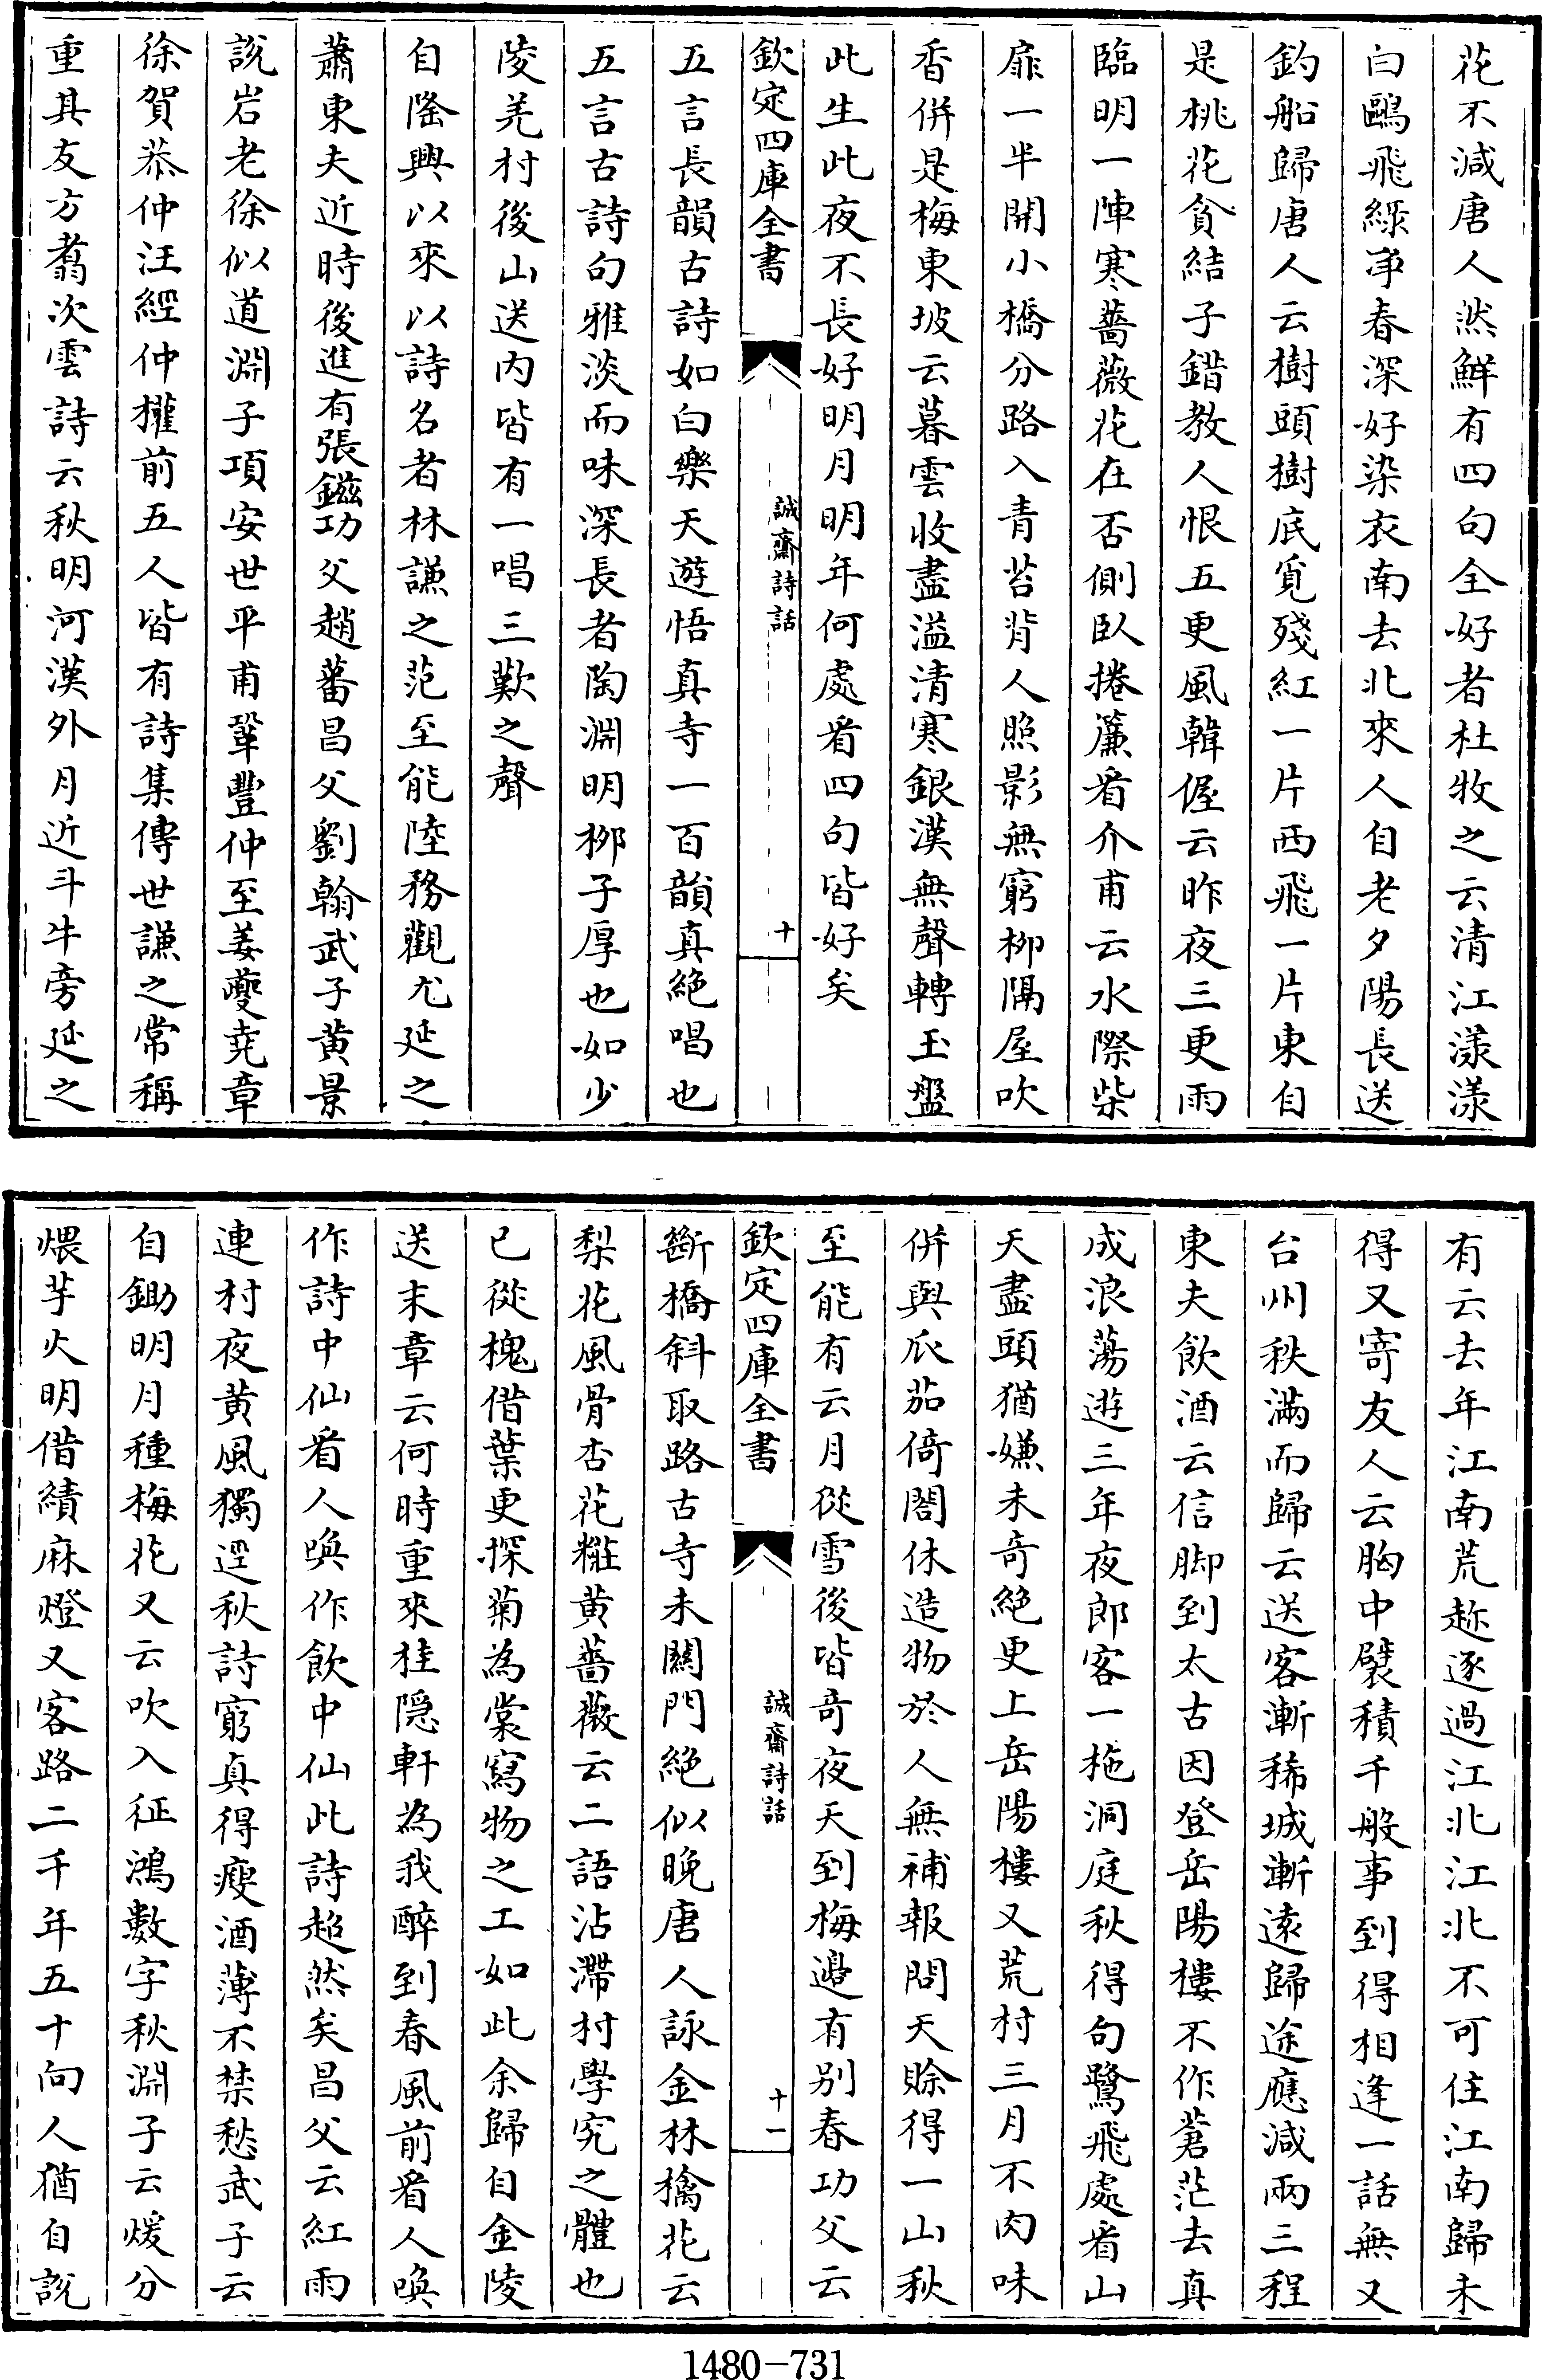 花不減唐人然鮮有四句全好者杜牧之云清江漾漾
白鷗飛綠净春深好染衣南去北來人自老夕陽長送
釣船歸唐人云樹頭樹底覓殘紅一片西飛一片東自
是桃花貪結子錯教人恨五更風韓偓云昨夜三更雨
臨明一陣寒薔薇花在否側臥捲簾看介甫云水際柴
扉一半開小橋分路入青苔背人照影無窮柳隔屋吹
香併是梅東坡云暮雲收盡溢清寒銀漢無聲轉玉盤
此生此夜不長好明月明年何處看四句皆好矣
欽定四庫全書
誠齋詩話
十
五言長韻古詩如白樂天遊悟真寺一百韻真絶唱也
五言古詩句雅淡而味深長者陶淵明栁子厚也如少
陵羌村後山送内皆有一唱三歎之聲
自隆興以來以詩名者林謙之范至能陸務觀尤延之
蕭東夫近時後進有張鎡功父趙蕃昌父劉翰武子黃景
說岩老徐似道淵子項安世平甫鞏豐仲至姜夔堯章
徐賀恭仲汪經仲權前五人皆有詩集傳世謙之常稱
重其友方翥次雲詩云秋明河漢外月近斗牛旁延之
有云去年江南荒趂逐過江北江北不可住江南歸未
得又寄友人云胸中襞積千般事到得相逢一話無又
台州秩滿而歸云送客漸稀城漸遠歸途應減兩三程
東夫飲酒云信脚到太古因登岳陽樓不作蒼茫去真
成浪蕩遊三年夜郎客一柂洞庭秋得句鷺飛處看山
天盡頭猶嫌未竒絶更上岳陽樓又荒村三月不肉味
併與瓜茄倚閣休造物於人無補報問天賒得一山秋
至能有云月從雪後皆竒夜天到梅邉有别春功父云
欽定四庫全書
誠齋詩話
十一
斷橋斜取路古寺未關門絶似晚唐人詠金林檎花云
梨花風骨杏花糚黃薔薇云二語沾滯村學究之體也
已從槐借葉更探菊為裳寫物之工如此余歸自金陵
送末章云何時重來桂隠軒為我醉到春風前看人喚
作詩中仙看人喚作飲中仙此詩超然矣昌父云紅雨
連村夜黃風獨逕秋詩窮真得瘦酒薄不禁愁武子云
自鋤明月種梅花又云吹入征鴻數字秋淵子云煖分
煨芋火明借績麻燈又客路二千年五十向人猶自説
1480-731